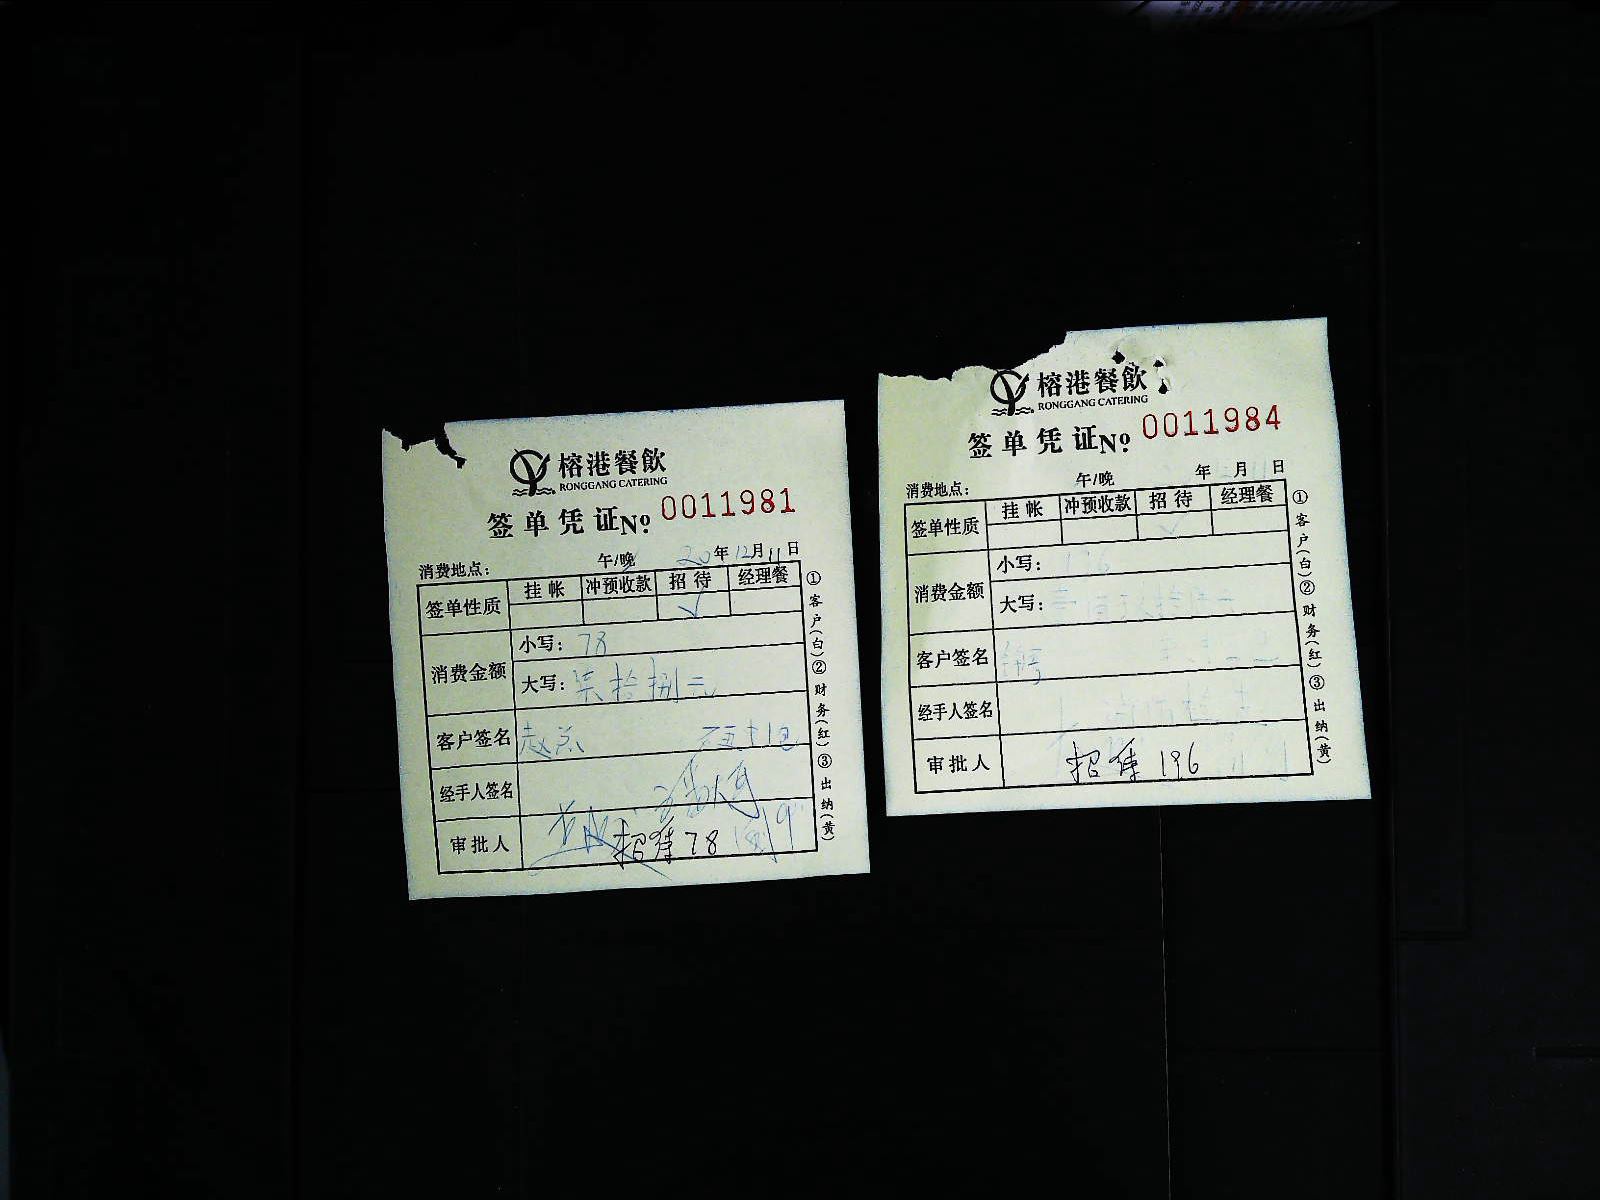 榕港餐飲
RONGGANG CATERING
签单凭证№ 0011981
消费地点： 午/晚 20年12月11日
签单性质 挂帐 冲预收款 招待 经理餐
√
消费金额 小写：78
大写：柒拾捌元
客户签名 赵总
经手人签名
审批人 招待78
①客户(白)②财务(红)③出纳(黄)
榕港餐飲
RONGGANG CATERING
签单凭证№ 0011984
消费地点： 午/晚 年 月 日
签单性质 挂帐 冲预收款 招待 经理餐
√
消费金额 小写：196
大写：
客户签名
经手人签名
审批人 招待196
①客户(白)②财务(红)③出纳(黄)